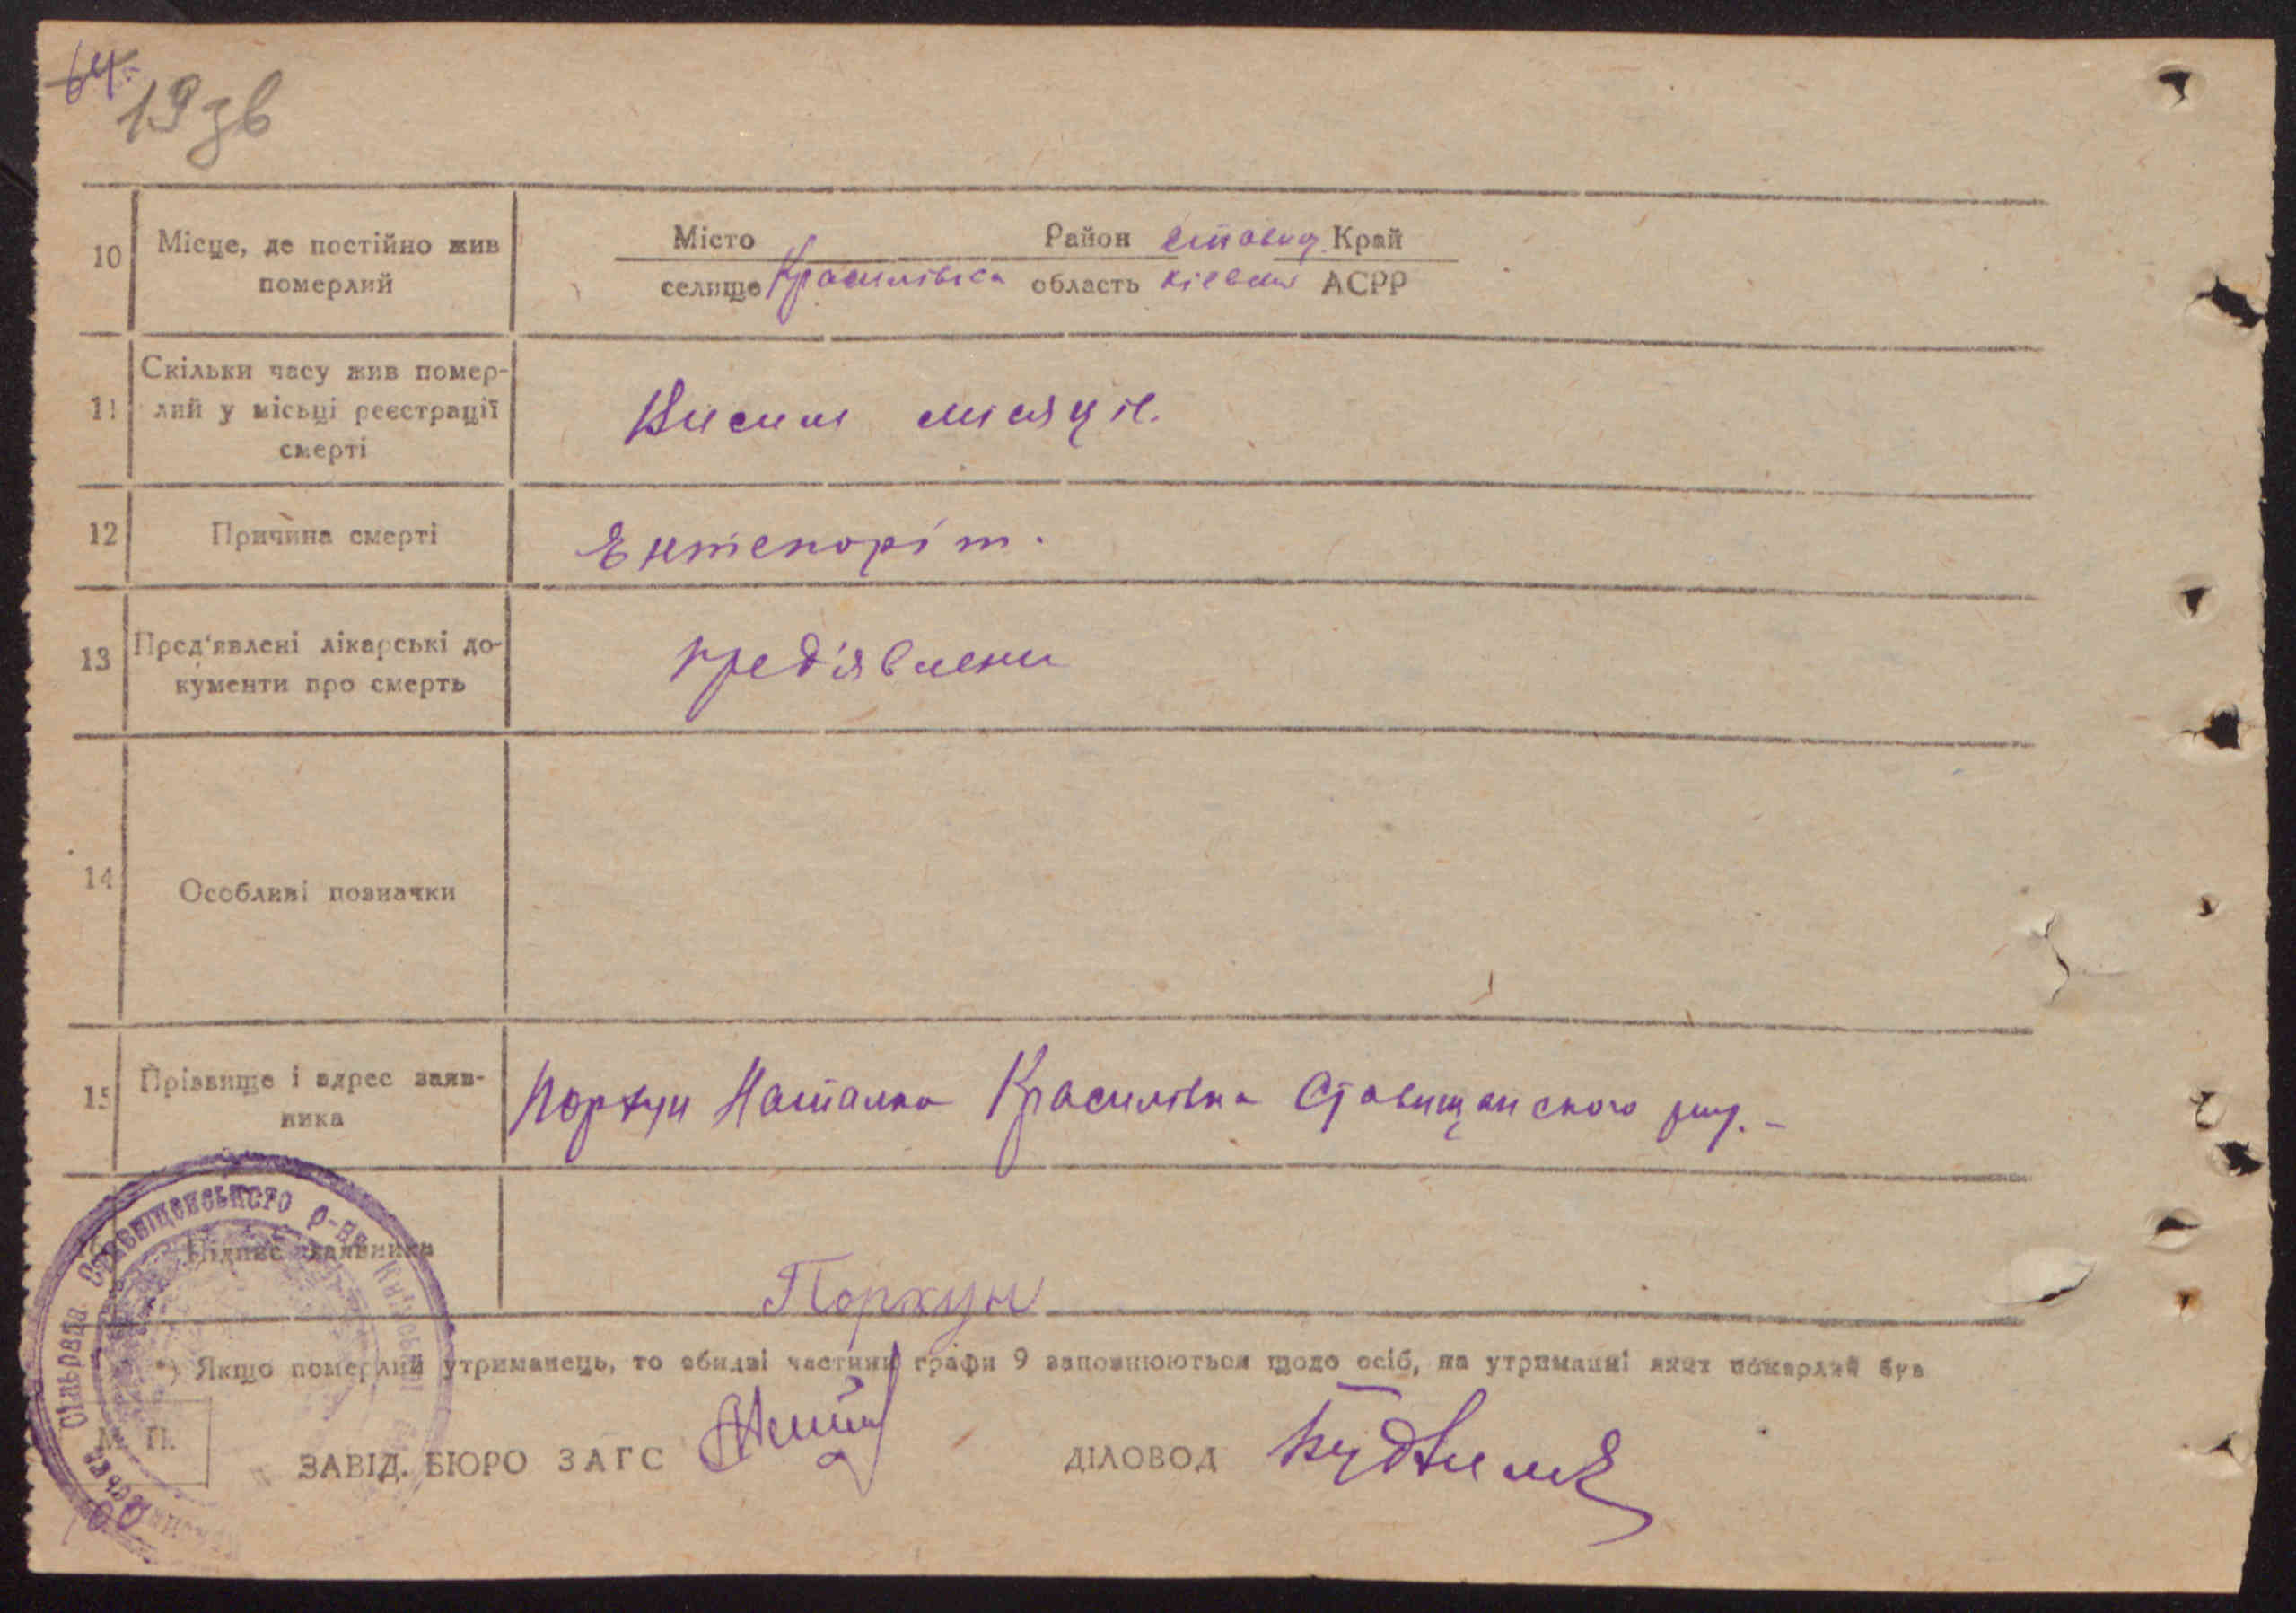 64
19 зв
10 Місце, де постійно жив померлий
Місто Район Ставищ. Край
селище Красилівка область Київськ АСРР
11 Скільки часу жив помер-
лий у місьці реєстрації
смерті
Висим місяців.
12 Причина смерті Ентекоріт.
13 Пред'явлені лікарські до-
кументи про смерть
предʼявлени
14 Особливі позначки
15 Прізвище і адрес заяв-
ника
Порхун Наталка Красилівка Ставищанського рну. -
Підпис заявника
Порхун
*) Якщо померлий утриманець, то обидві частини графи 9 заповнюються щодо осіб, на утриманні яких померлий був
М. П.
ЗАВІД. БЮРО ЗАГС ДІЛОВОД
Сільрада Ставищенського р-на Київської